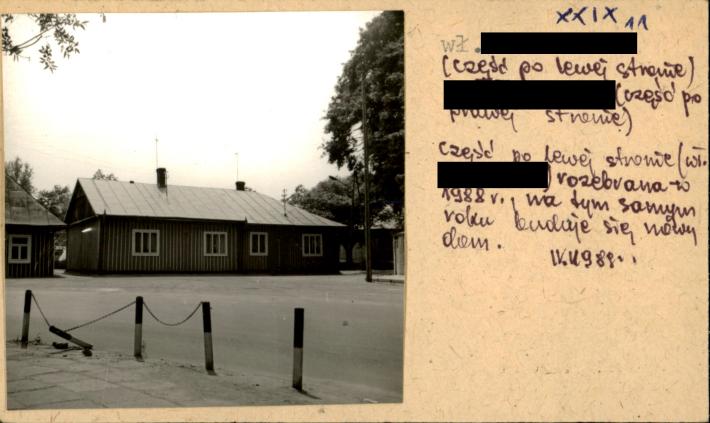 XXIX 11
wł.
(część po lewej stronie)
(część po
prawej stronie)
część po lewej stronie (wł.
) rozebrana w
1988 r., na tym samym
roku buduje się nowy
dom.
1988 r.